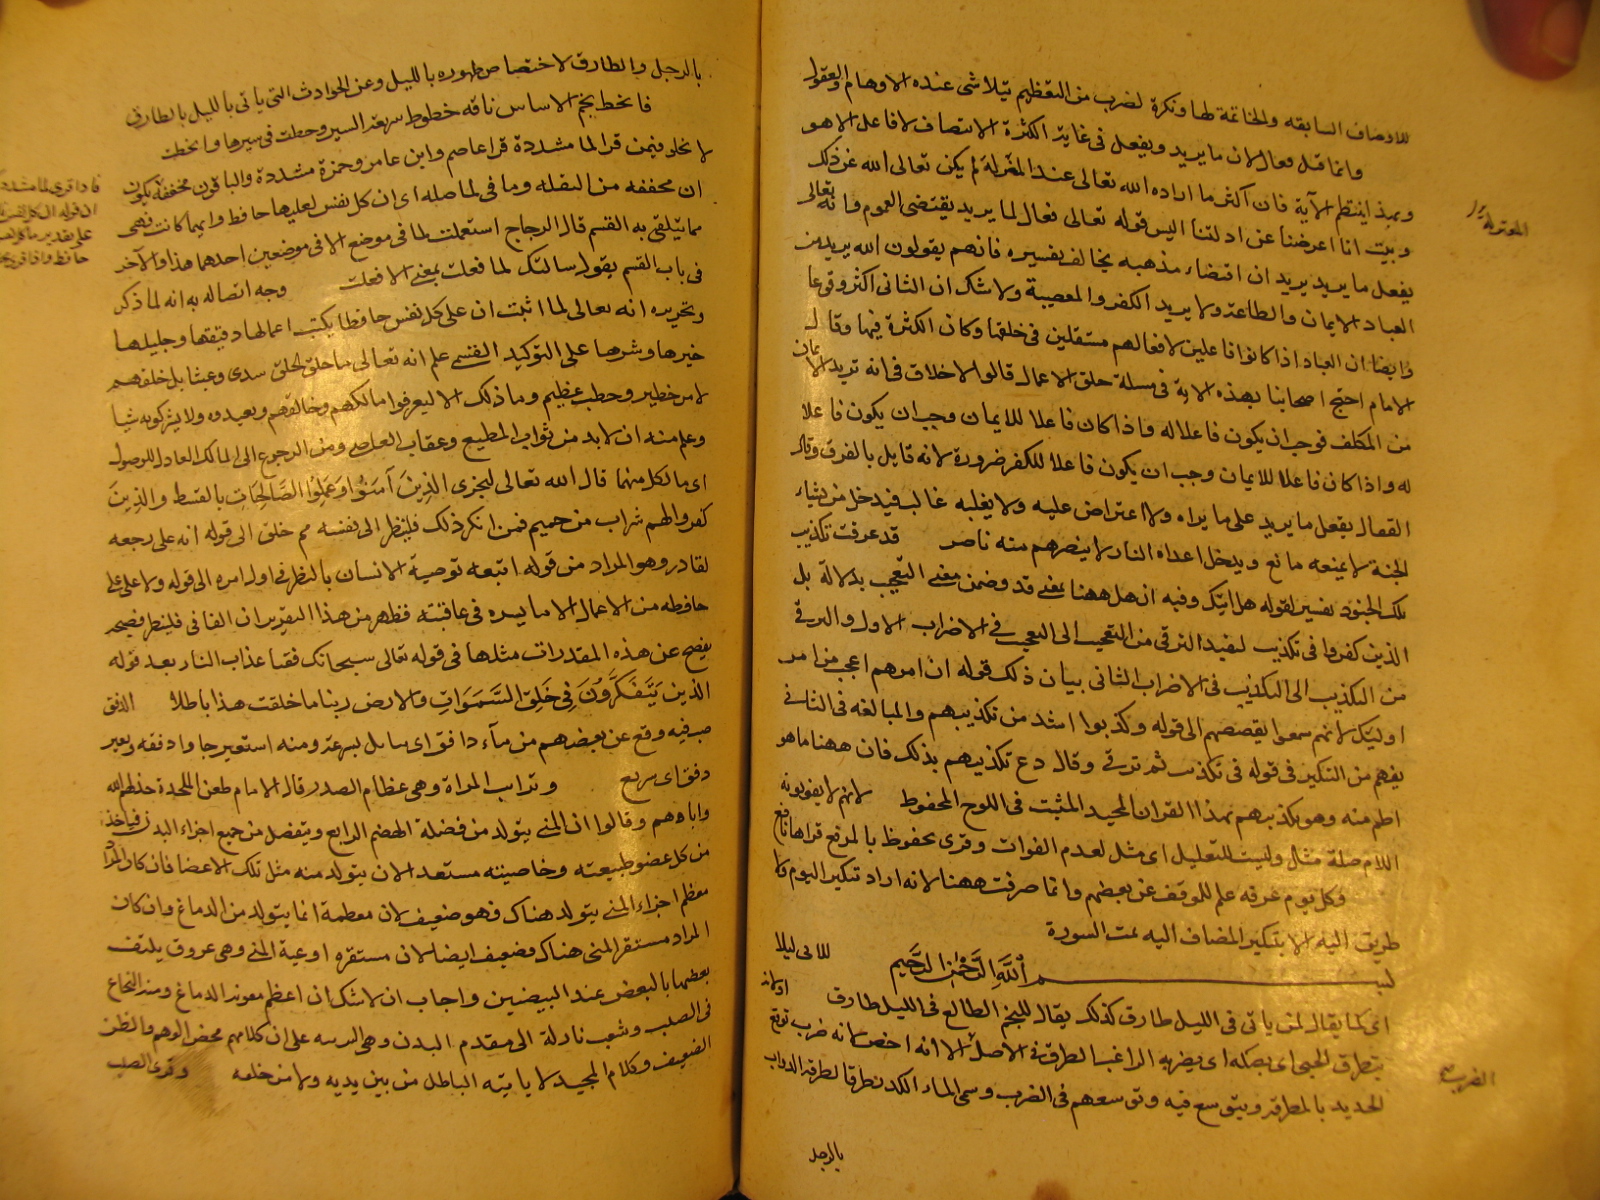 للاوصاف السابقه والخاتمة لها ونكرة لضرب من التعظيم يتلاشى عنده الاوهام والعقول
وانما قيل فعال لان ما يريد ويفعل فى غاية الكثرة الانتصاف لا فاعل الا هو
وبهذا ينتظم الآية فان أكثر ما اراده الله تعالى عند المعتزلة لم يكن تعالى الله عن ذلك
وبيت انا اعرضنا عن ادلتنا اليس قوله تعالى فعال لما يريد يقتضى العموم فانه تعالى
يفعل ما يريد يريد ان اقتضاء مذهبه يخالف تفسيره فانهم يقولون الله يريد من
العباد الايمان والطاعة ولا يريد الكفر والمعصية ولا شك ان الثانى اكثر وقوعا
وايضا ان العباد اذا كانوا فاعلين لافعالهم مستقلين فى خلقها وكان الكثرة فيها وقال
الامام احتج اصحابنا بهذه الآية فى مسئلة خلق الاعمال قالوا لا خلاف فى انه تريد الايمان
من المكلف فوجب ان يكون فاعلا له فاذا كان فاعلا للايمان وجب ان يكون فاعلا
له واذا كان فاعلا للايمان وجب ان يكون فاعلا للكفر ضرورة لانه قايل بالفرق وقال
القفال يفعل ما يريد على ما يراه ولا اعتراض عليه ولا يغلبه غالب فيدخل من يشاء
الجنة لا يمنعه مانع ويدخل اعداء النار لا ينصرهم منه ناصر قد عرفت تكذيب
تلك الجنود تفسير لقوله هل اتيك وفيه ان هل ههنا بمعنى قد وضمن معنى التعجب بدلالة بل
الذين كفروا فى تكذيب ليفيد الترقى من التعجب الى التعجب فى الاضراب الاول والترقى
من التكذيب الى التكذيب فى الاضراب الثانى بيان ذلك قوله ان امرهم اعجب من امر
اوليك لانهم سمعوا بقصصهم الى قوله وكذبوا اشد من تكذيبهم والمبالغة فى الثانى
يفهم من التنكير فى قوله فى تكذيب ثم ترقى وقال دع تكذيبهم بذلك فان ههنا ما هو
اطم منه وهو تكذيبهم بهذا القران المجيد المثبت فى اللوح المحفوظ لانهم لا يفوتونه
اللام صلة مثل وليست للتعليل اى مثل لعدم الفوات وقرى محفوظ بالرفع قراها نافع
وكل يوم عرفه علم للموقف عن بعضهم وانما صرفت ههنا لانه اراد تنكير اليوم ولا
طريق اليه الا بتنكير المضاف اليه تمت السورة
بسم الله الرحمن الرحيم
اى كما يقال لمن ياتى فى الليل طارق كذلك يقال للنجم الطالع فى الليل طارق
يتطرق الجنى اى يصكه اى يضربه الراغب الطرق فى الاصل الا انه اخص لانه ضرب توقع
الحديد بالمطرقة ويتوسع فيه وتوسعهم فى الضرب وسمى الماء الكدر طرقا لطرقه الدواب
بالرجل
المعتزلة
الضرب
بالرجل والطارق لاختصاص ظهوره بالليل وعن الحوادث التى ياتى بالليل بالطارق
فانحط نجم الاساس ناقه خطوط سريعة السير وحطت فى سيرها وانحطت
لا يخلو فيمن قرا لما مشددة قرا عاصم وابن عامر وحمزة مشددة والباقون مخففة يكون
ان مخففه من الثقله وما فى لما صله اى ان كل نفس لعليها حافظ وايهما كانت فهى
مما يتلقى به القسم قال الزجاج استعملت لما فى موضع الا فى موضعين احدهما هذا والآخر
فى باب القسم يقول سالتك لما فعلت بمعنى الا فعلت وجه اتصاله به انه لما ذكر
وتحريره انه تعالى لما اثبت ان على كل نفس حافظا يكتب اعمالها دقيقها وجليلها
خيرها وشرها على التوكيد القسمى علم انه تعالى ما خلق الخلق سدى وعبثا بل خلقهم
لامر خطير وخطب عظيم وما ذلك الا ليعرفوا مالكهم وخالقهم ويعبدوه ولا يشركوا به شيا
وعلم منه ان لا بد من ثواب المطيع وعقاب العاصى ومن الرجوع الى المالك العادل للوصول
اى مال كل منهما قال الله تعالى ليجزى الذِينَ آمَنُوا وَعَمِلُوا الصَّالِحَاتِ بالقسط والذِينَ
كفروا لهم شراب من حميم فمن انكر ذلك فلينظر الى نفسه مم خلق الى قوله انه على رجعه
لقادر وهو المراد من قوله اتبعه توصية الانسان بالنظر فى اول امره الى قوله ولا يملى على
حافظه من الاعمال الا ما يسره فى عاقبته فظهر من هذا التقرير ان الفا فى فلينظر فصيحه
يفصح عن هذه المقدرات مثلها فى قوله تعالى سبحانك فقنا عذاب النار بعد قوله
الذين يَتَفَكَّرُونَ فِى خَلْقِ السَّمَوَاتِ والارض ربنا ما خلقت هذا باطلا الدفق
صب فيه وقع عن بعضهم من مآء دافق اى سايل بسرعة ومنه استعير جاوا دفقه وبعير
دفق اى سريع وترايب المراة وهى عظام الصدر قال الامام طعن الملحدة خذلهم الله
واباهم وقالوا ان المنى يتولد من فضلة الهضم الرابع وينفصل من جميع اجزاء البدن فياخذ
من كل عضو طبيعته وخاصيته مستعدا لان يتولد منه مثل تلك الاعضا فان كان المراد
معظم اجزاء المنى يتولد هناك فهو ضعيف لان معظمه انما يتولد من الدماغ وان كان
المراد مستقر المنى هناك فضعيف ايضا لان مستقره اوعية المنى وهى عروق يلتف
بعضها بالبعض عند البيضين واجاب ان لا شك ان اعظم معونة الدماغ ومنه النخاع
فى الصلب وشعب نازلة الى مقدم البدن وهى التريبه على ان كلامهم محض الوهم والظن
الضعيف وكلام المجيد لا ياتيه الباطل من بين يديه ولا من خلفه وقرئ الصلب
فاذا قرى لما مشددة
ان قوله ان كل نفس
على تقدير ما كل نفس
حافظ واذا قرى